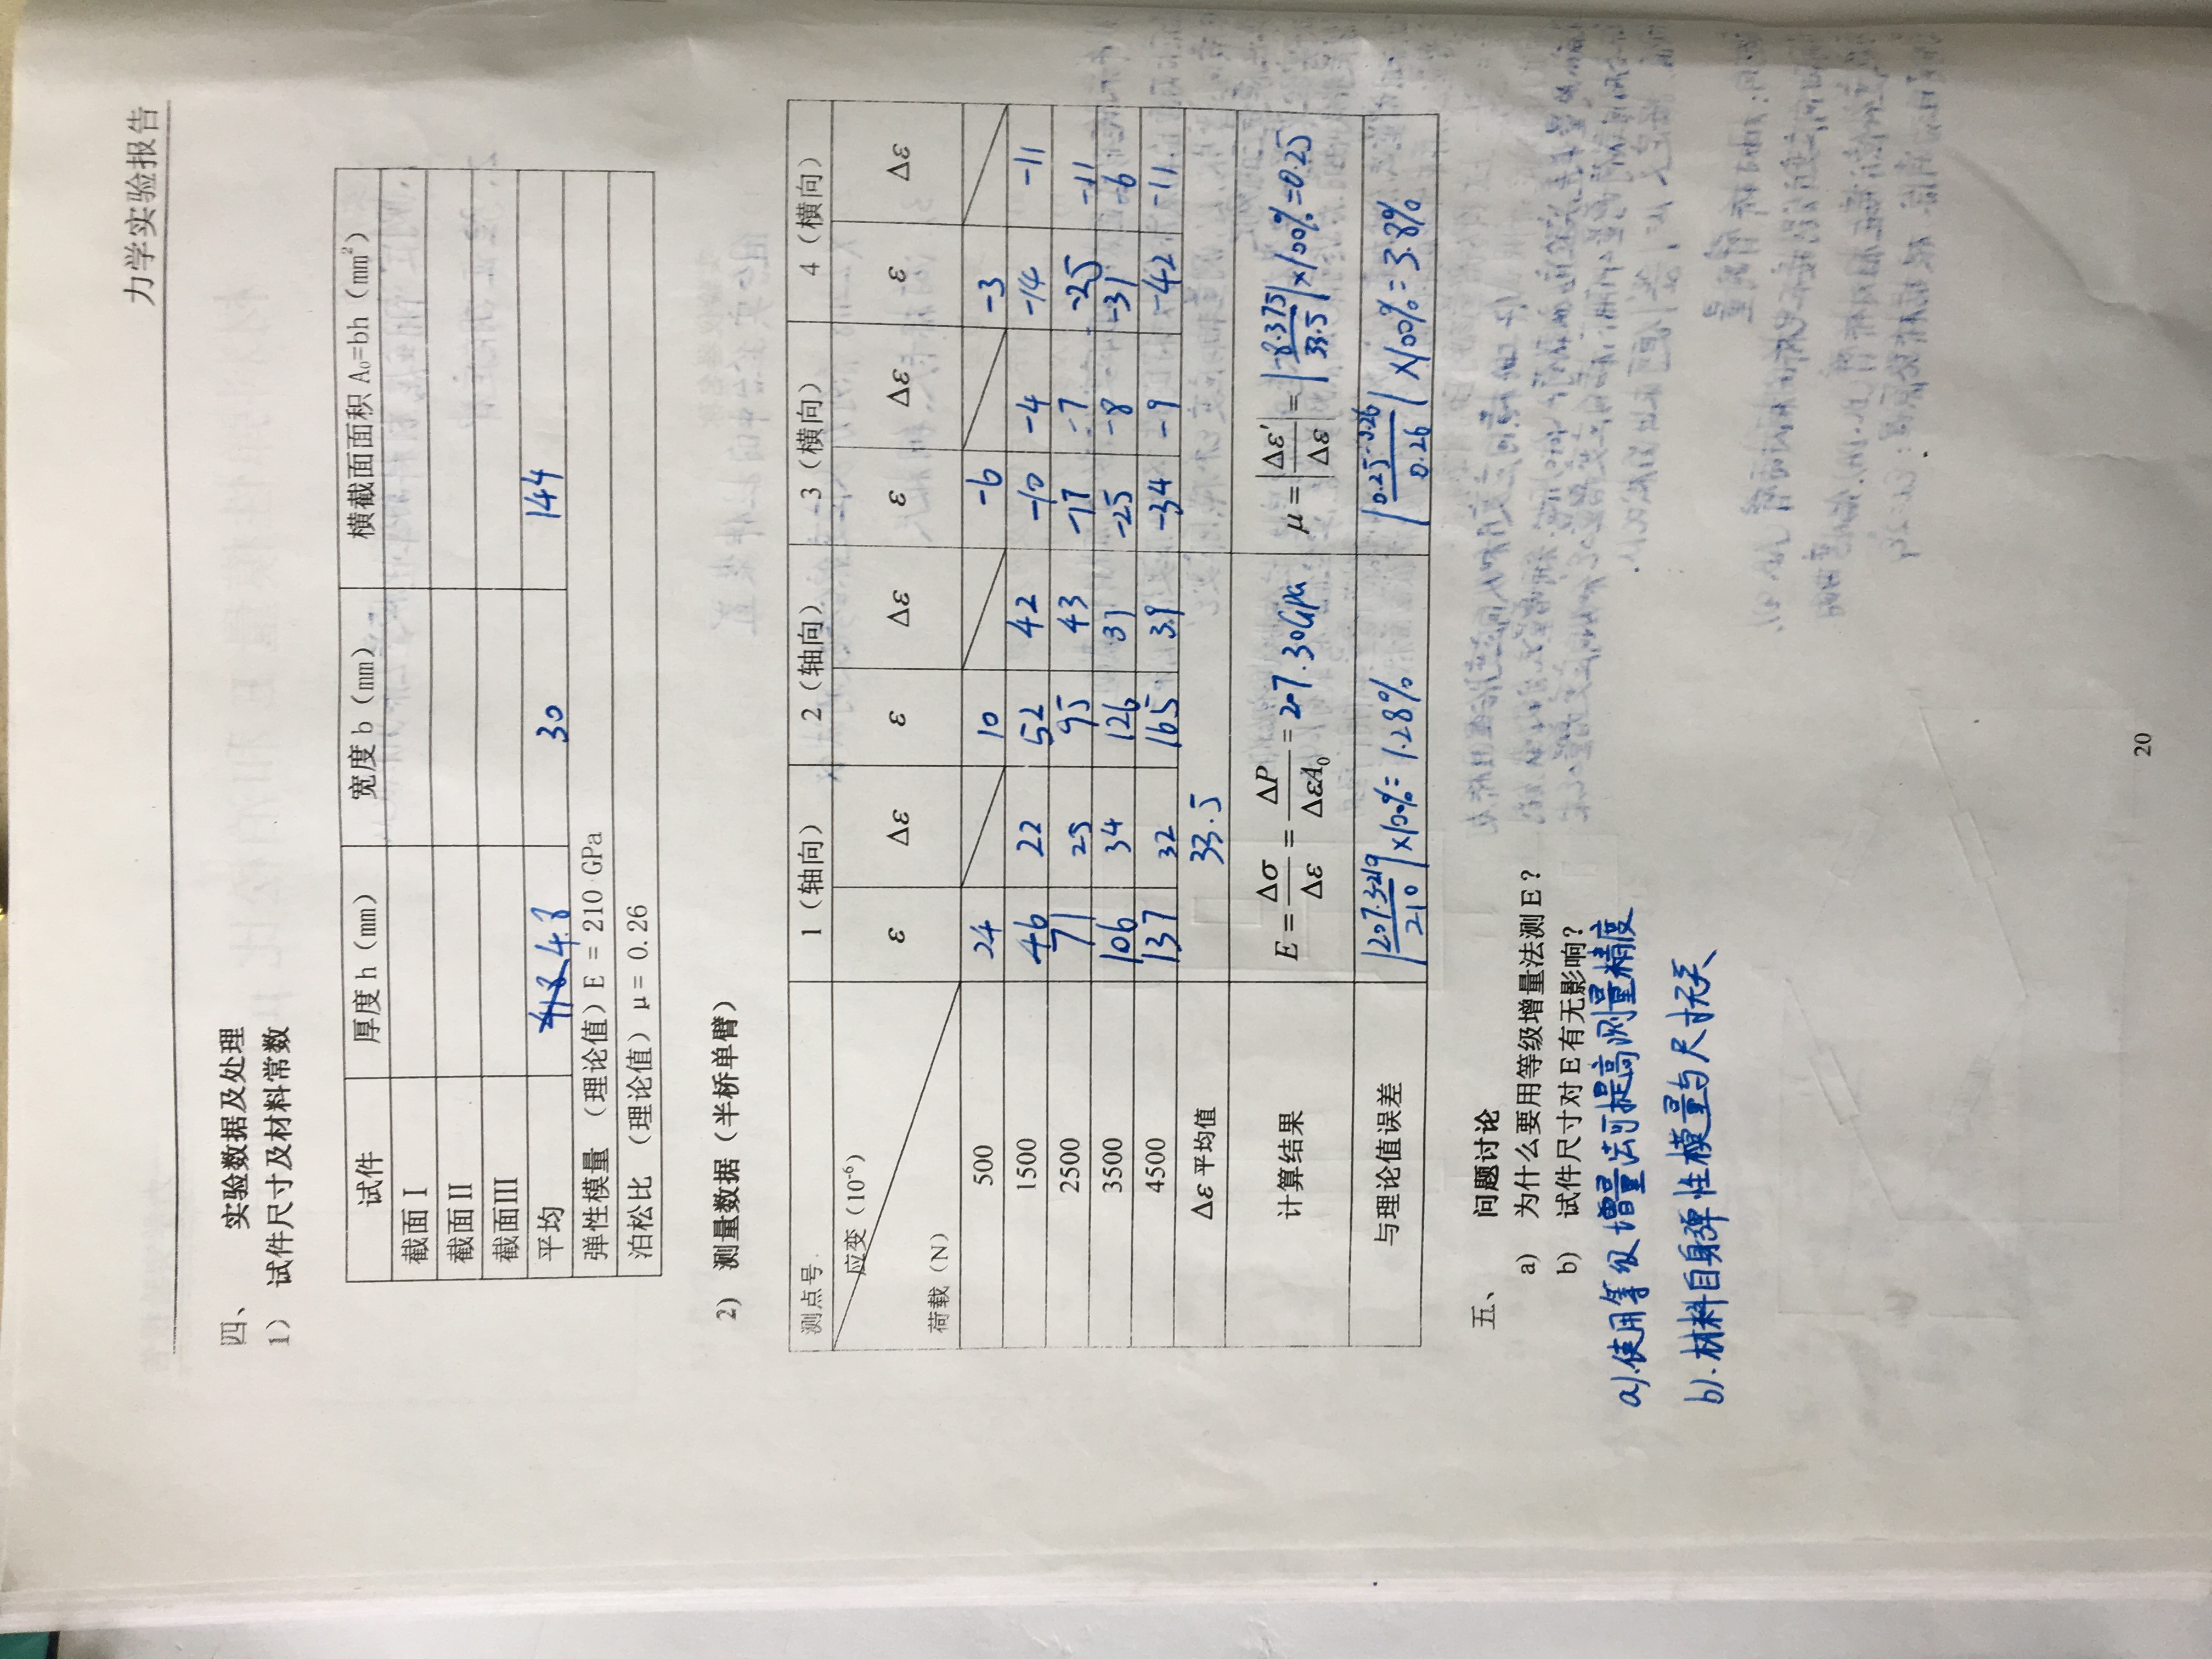 力学实验报告
四、 实验数据及处理
1） 试件尺寸及材料常数
试件 厚度 h（mm） 宽度 b（mm） 横截面面积 A₀=bh（mm²）
截面 I
截面 II
截面III
平均 4.8 30 144
弹性模量 （理论值）E = 210 GPa
泊松比 （理论值）μ= 0.26
2) 测量数据（半桥单臂）
测点号 1（轴向） 2（轴向） 3（横向） 4（横向）
应变（10⁻⁶）
荷载（N） ε Δε ε Δε ε Δε ε Δε
500 24 10 -6 -3
1500 46 22 52 42 -10 -4 -14 -11
2500 71 25 95 43 -17 -7 -25 -11
3500 106 34 126 31 -25 -8 -31 -6
4500 137 32 165 39 -34 -9 -42 -11
Δε 平均值 33.5
计算结果 E = Δσ/Δε = ΔP/ΔεA₀ = 207.30GPa μ = |Δε'/Δε| = |-8.375/33.5|×100%=0.25
与理论值误差 |207.3-210/210|×100%= 1.28% |0.25-0.26/0.26|×100%=3.8%
五、 问题讨论
a) 为什么要用等级增量法测 E？
b) 试件尺寸对 E 有无影响？
a).使用等级增量法可提高测量精度
b).材料自身弹性模量与尺寸无关
20